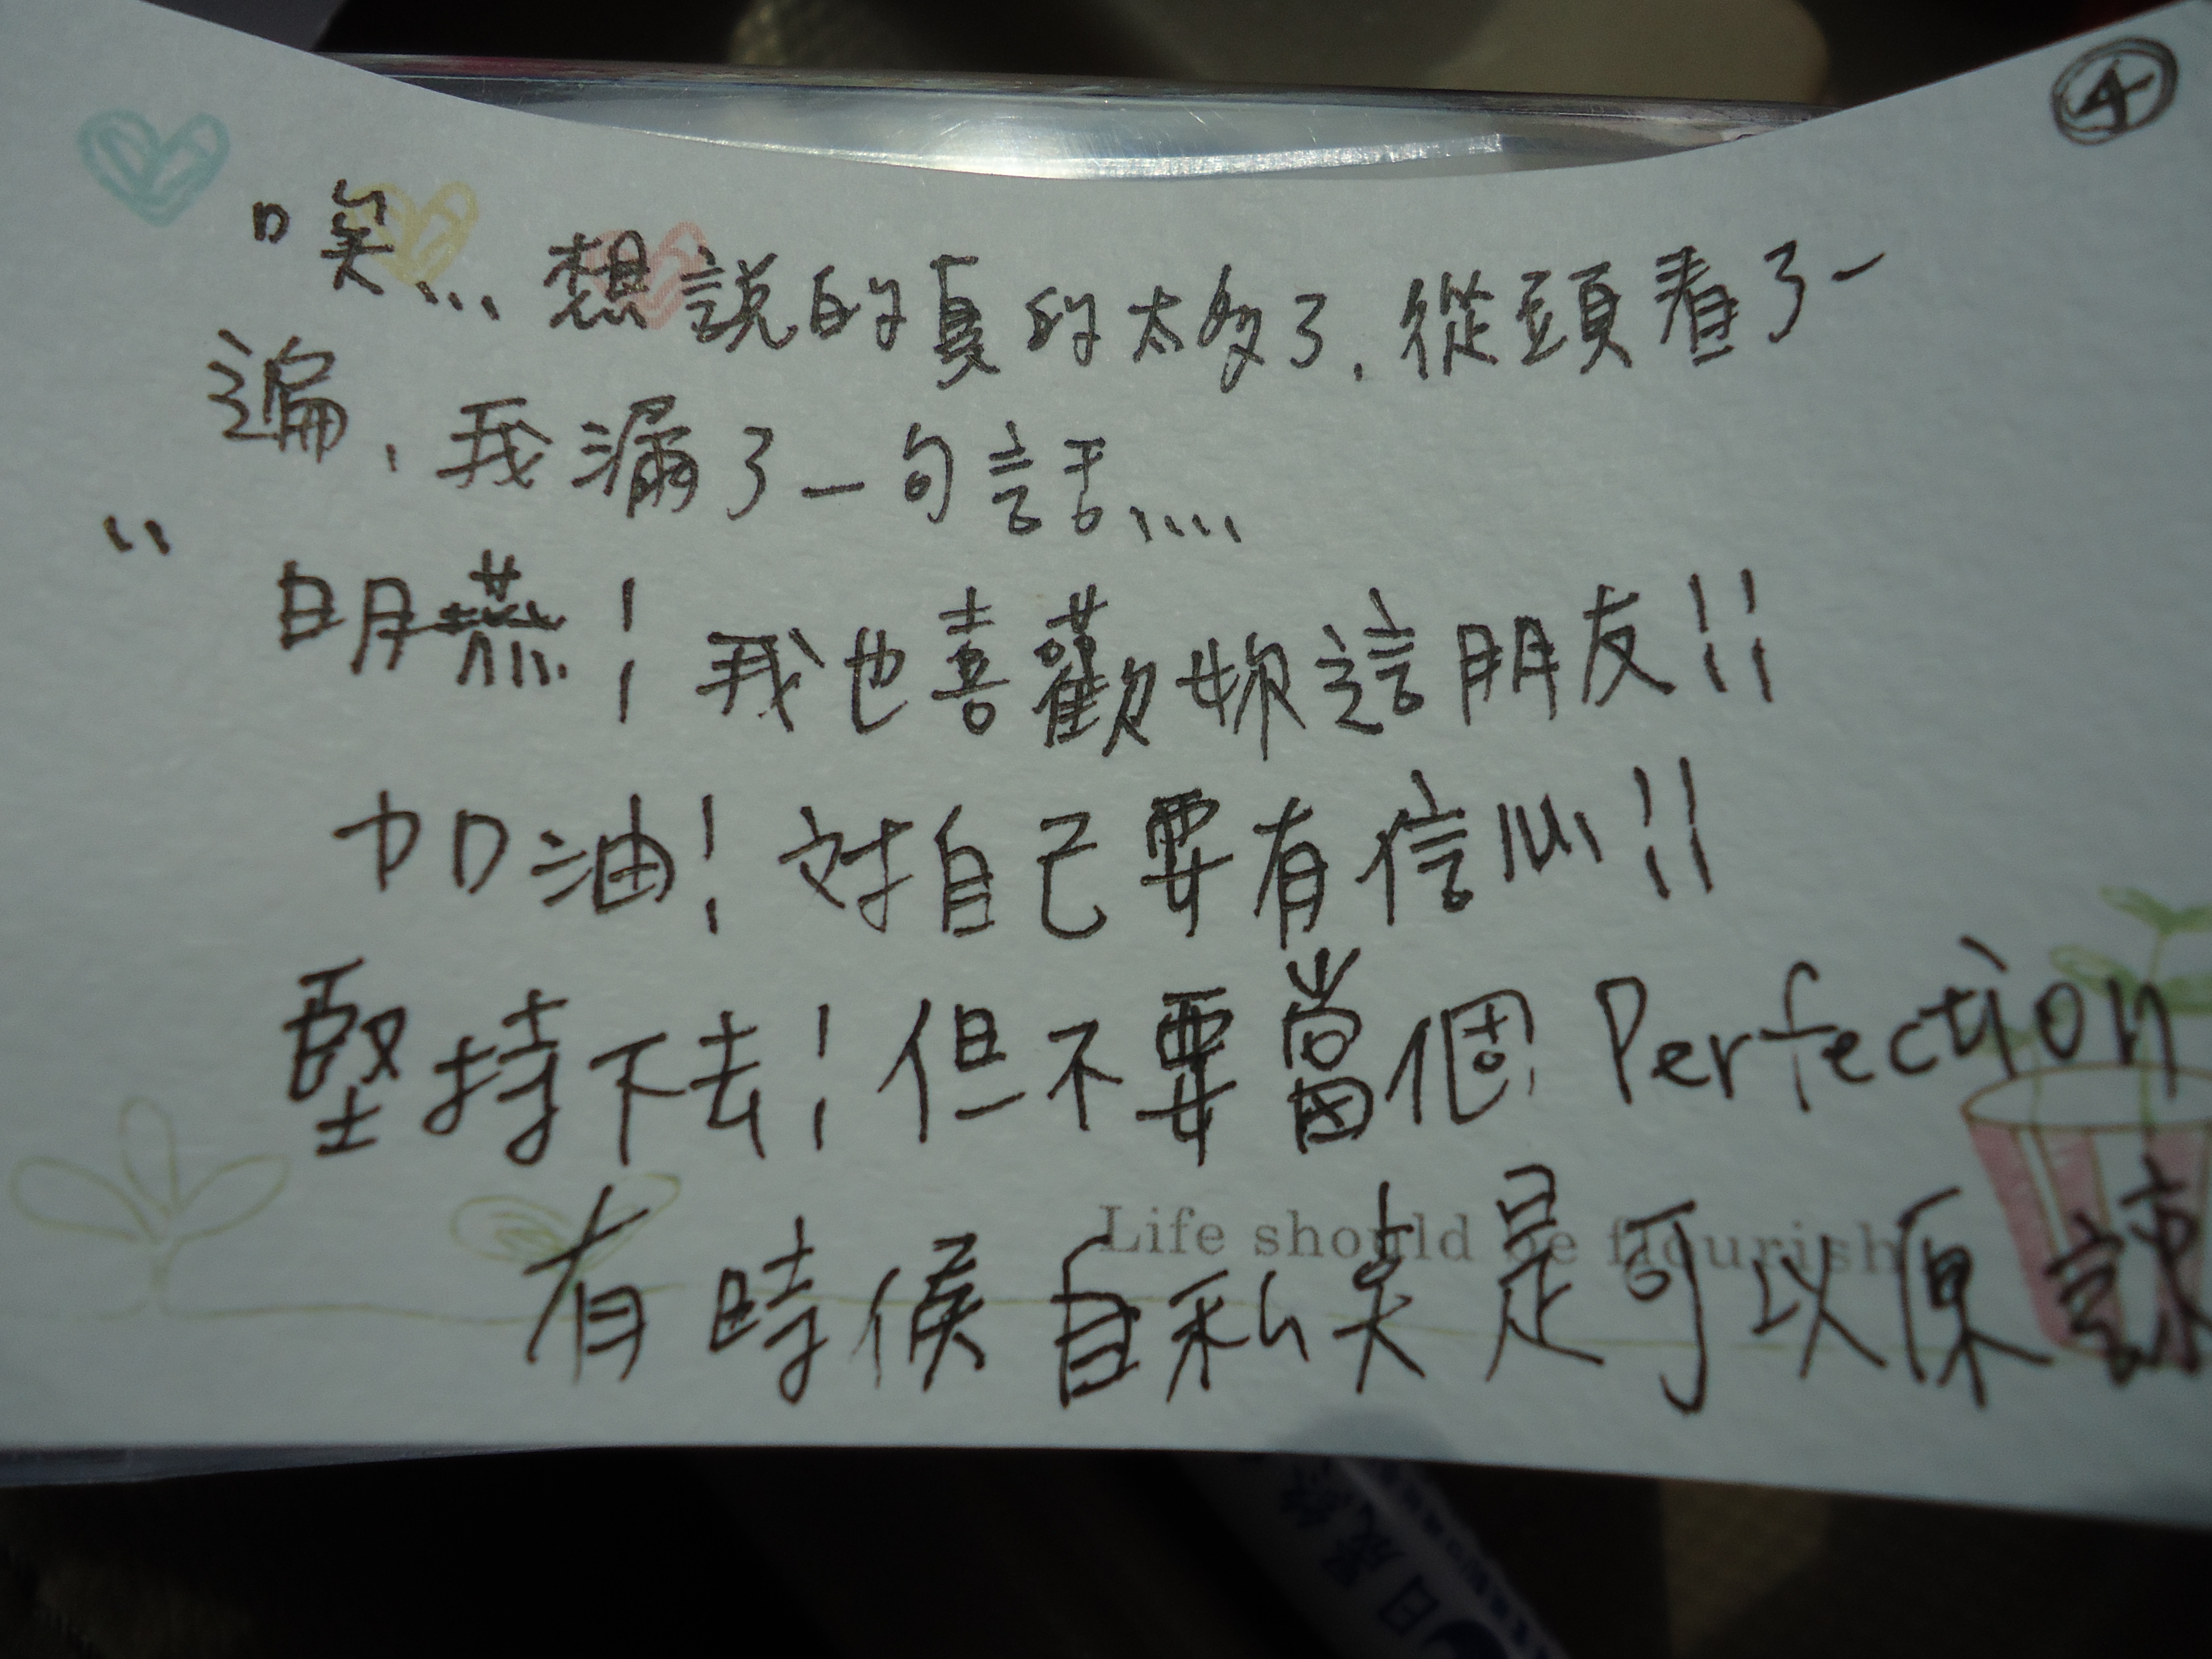 ④
唉... 想說的真的太多了，從頭看了一
遍，我漏了一句話....
"
明燕！我也喜歡妳這朋友!!
加油！对自己要有信心!!
堅持下去！但不要當個 Perfection
Life should be flourish
有時候自私夫是可以原諒